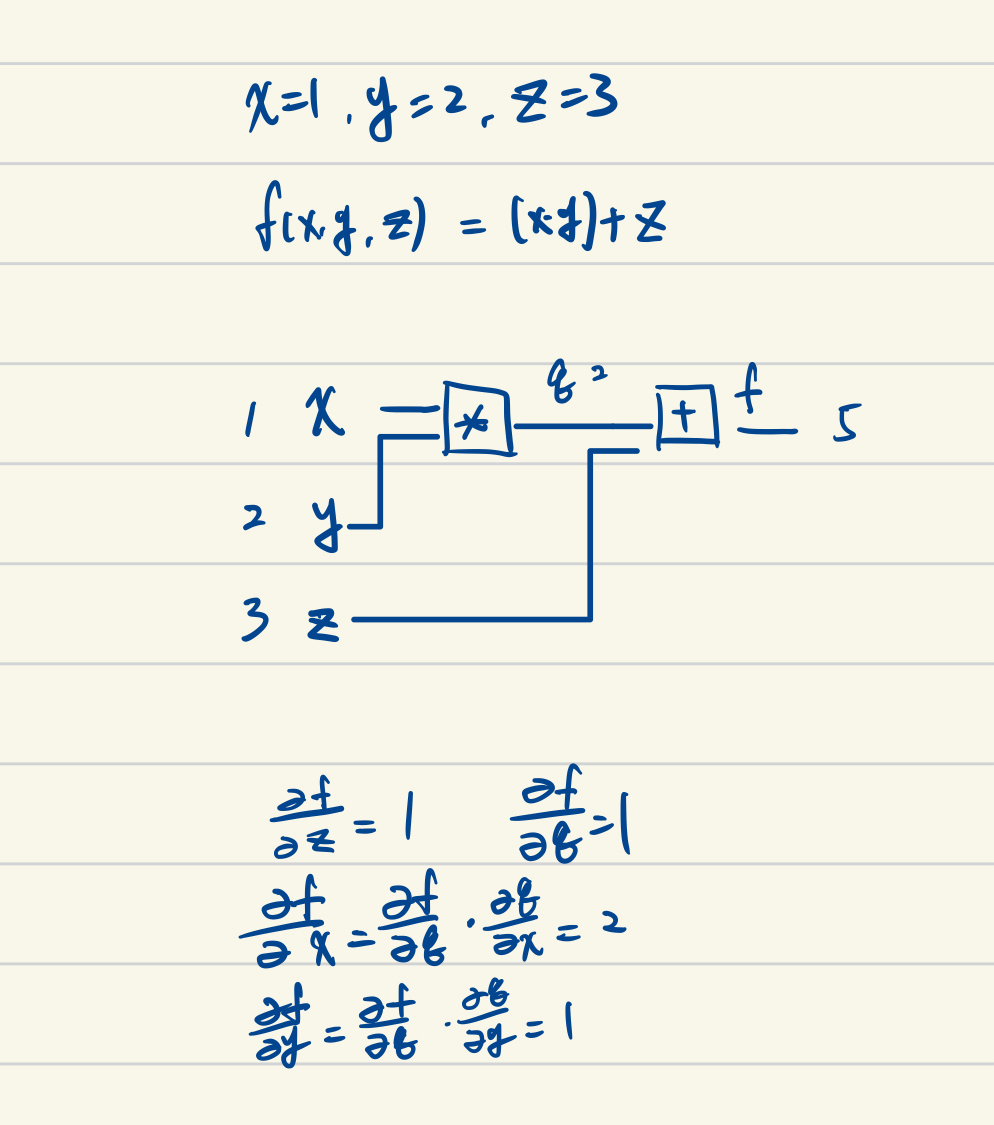 x=1, y=2, z=3
f(x,y,z) = (xy)+z
q 2 f
1 x * + 5
2 y
3 z
∂f/∂z = 1 ∂f/∂q = 1
∂f/∂x = ∂f/∂q · ∂q/∂x = 2
∂f/∂y = ∂f/∂q · ∂q/∂y = 1